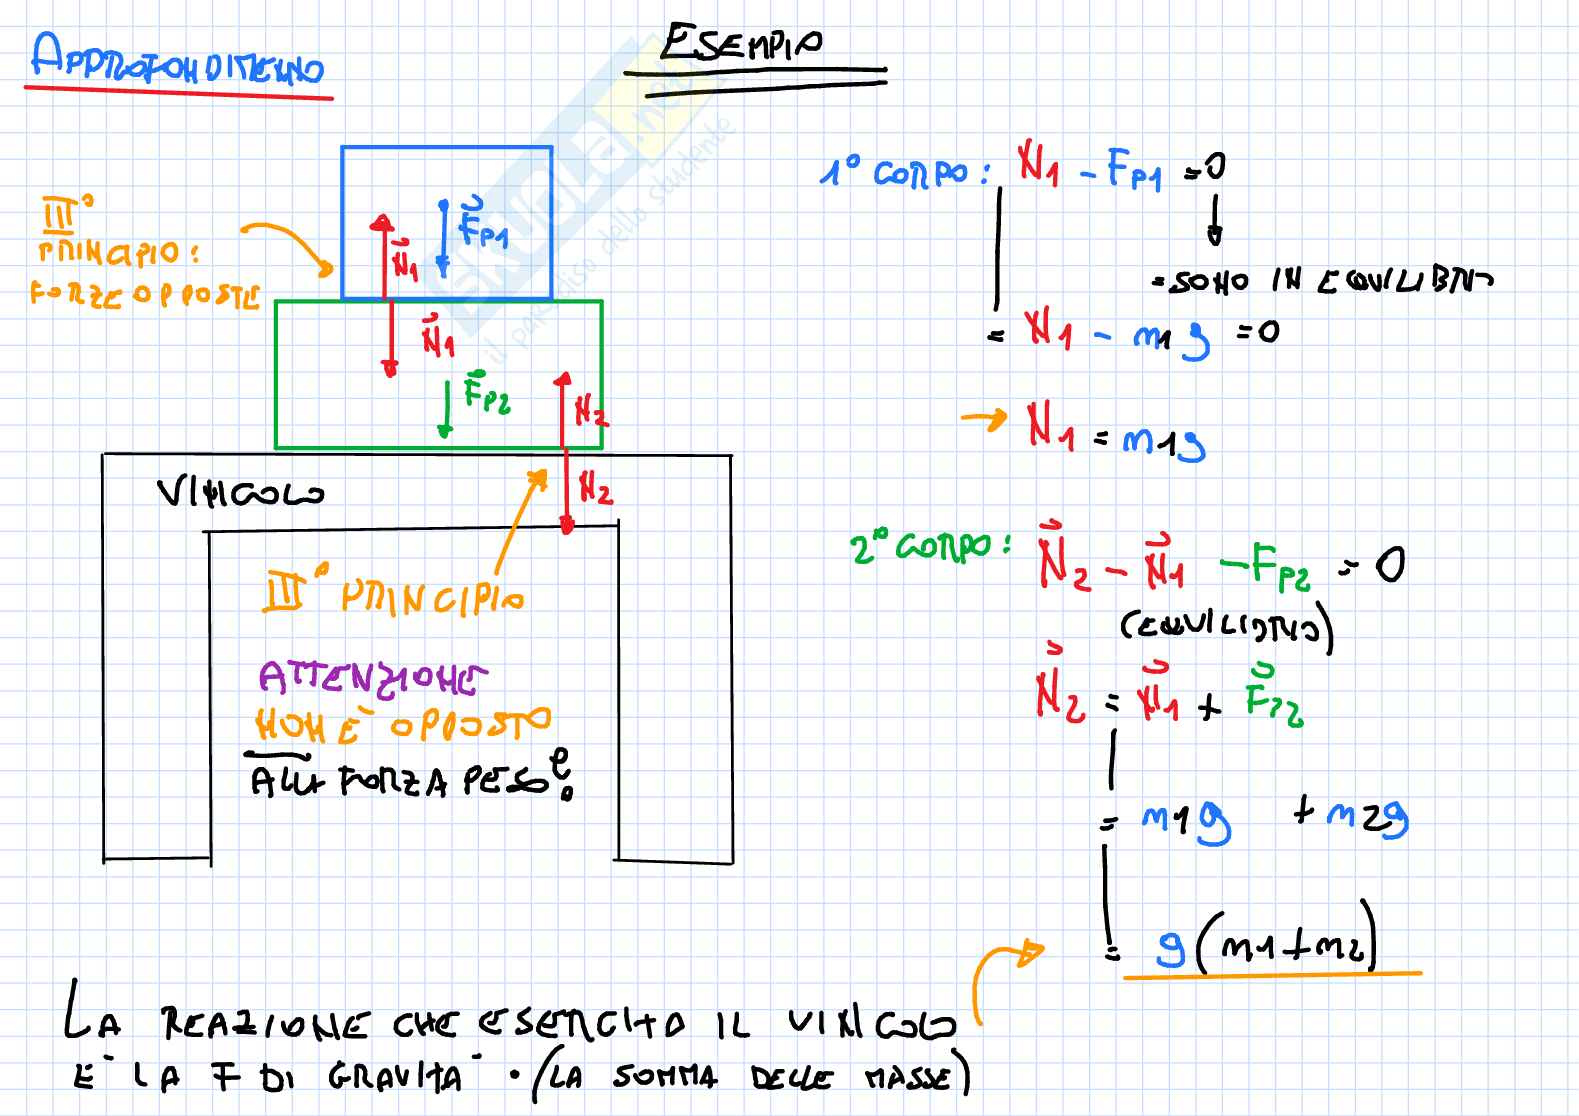 APPROFONDIMENTO
ESEMPIO
III° PRINCIPIO:
FORZE OPPOSTE
F⃗p1
N⃗1
N⃗1
F⃗p2
N2
N2
VINCOLO
III° PRINCIPIO
ATTENZIONE
NON È OPPOSTO
ALLA FORZA PESO!
1° CORPO: N1 - Fp1 = 0
= SONO IN EQUILIBRIO
= N1 - m1 g = 0
→ N1 = m1g
2° CORPO: N⃗2 - N⃗1 - Fp2 = 0
(EQUILIBRIO)
N⃗2 = N⃗1 + F⃗p2
= m1g + m2g
= g(m1+m2)
LA REAZIONE CHE ESERCITA IL VINCOLO
È LA F DI GRAVITÀ · (LA SOMMA DELLE MASSE)
skuola.net
il paradiso dello studente